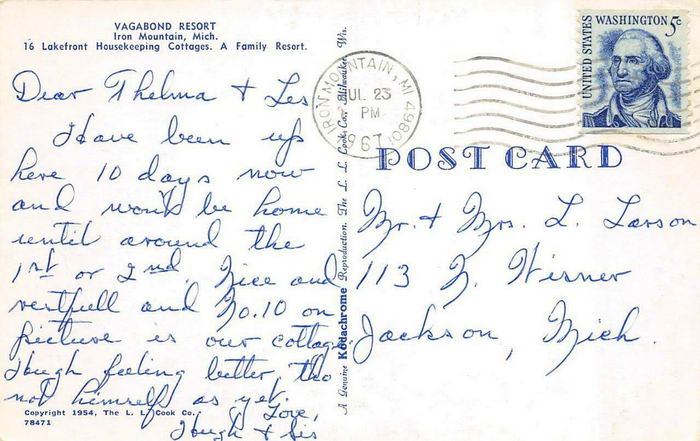 VAGABOND RESORT
Iron Mountain, Mich.
16 Lakefront Housekeeping Cottages. A Family Resort.
Dear Thelma & Les
Have been up
here 10 days now
and won't be home
until around the
1st or 2nd. Nice and
restfull and No. 10 on
picture is our cottage.
Hugh feeling better, tho
not himself as yet.
Love,
Hugh & Sis
Copyright 1954, The L. L. Cook Co.
78471
A Genuine Kodachrome Reproduction. The L. L. Cook Co., Milwaukee, Wis.
IRON MOUNTAIN, MI 49801
JUL 23
PM
1967
UNITED STATES
WASHINGTON 5c
POST CARD
Mr. & Mrs. L. Larson
113 N. Wisner
Jackson, Mich.